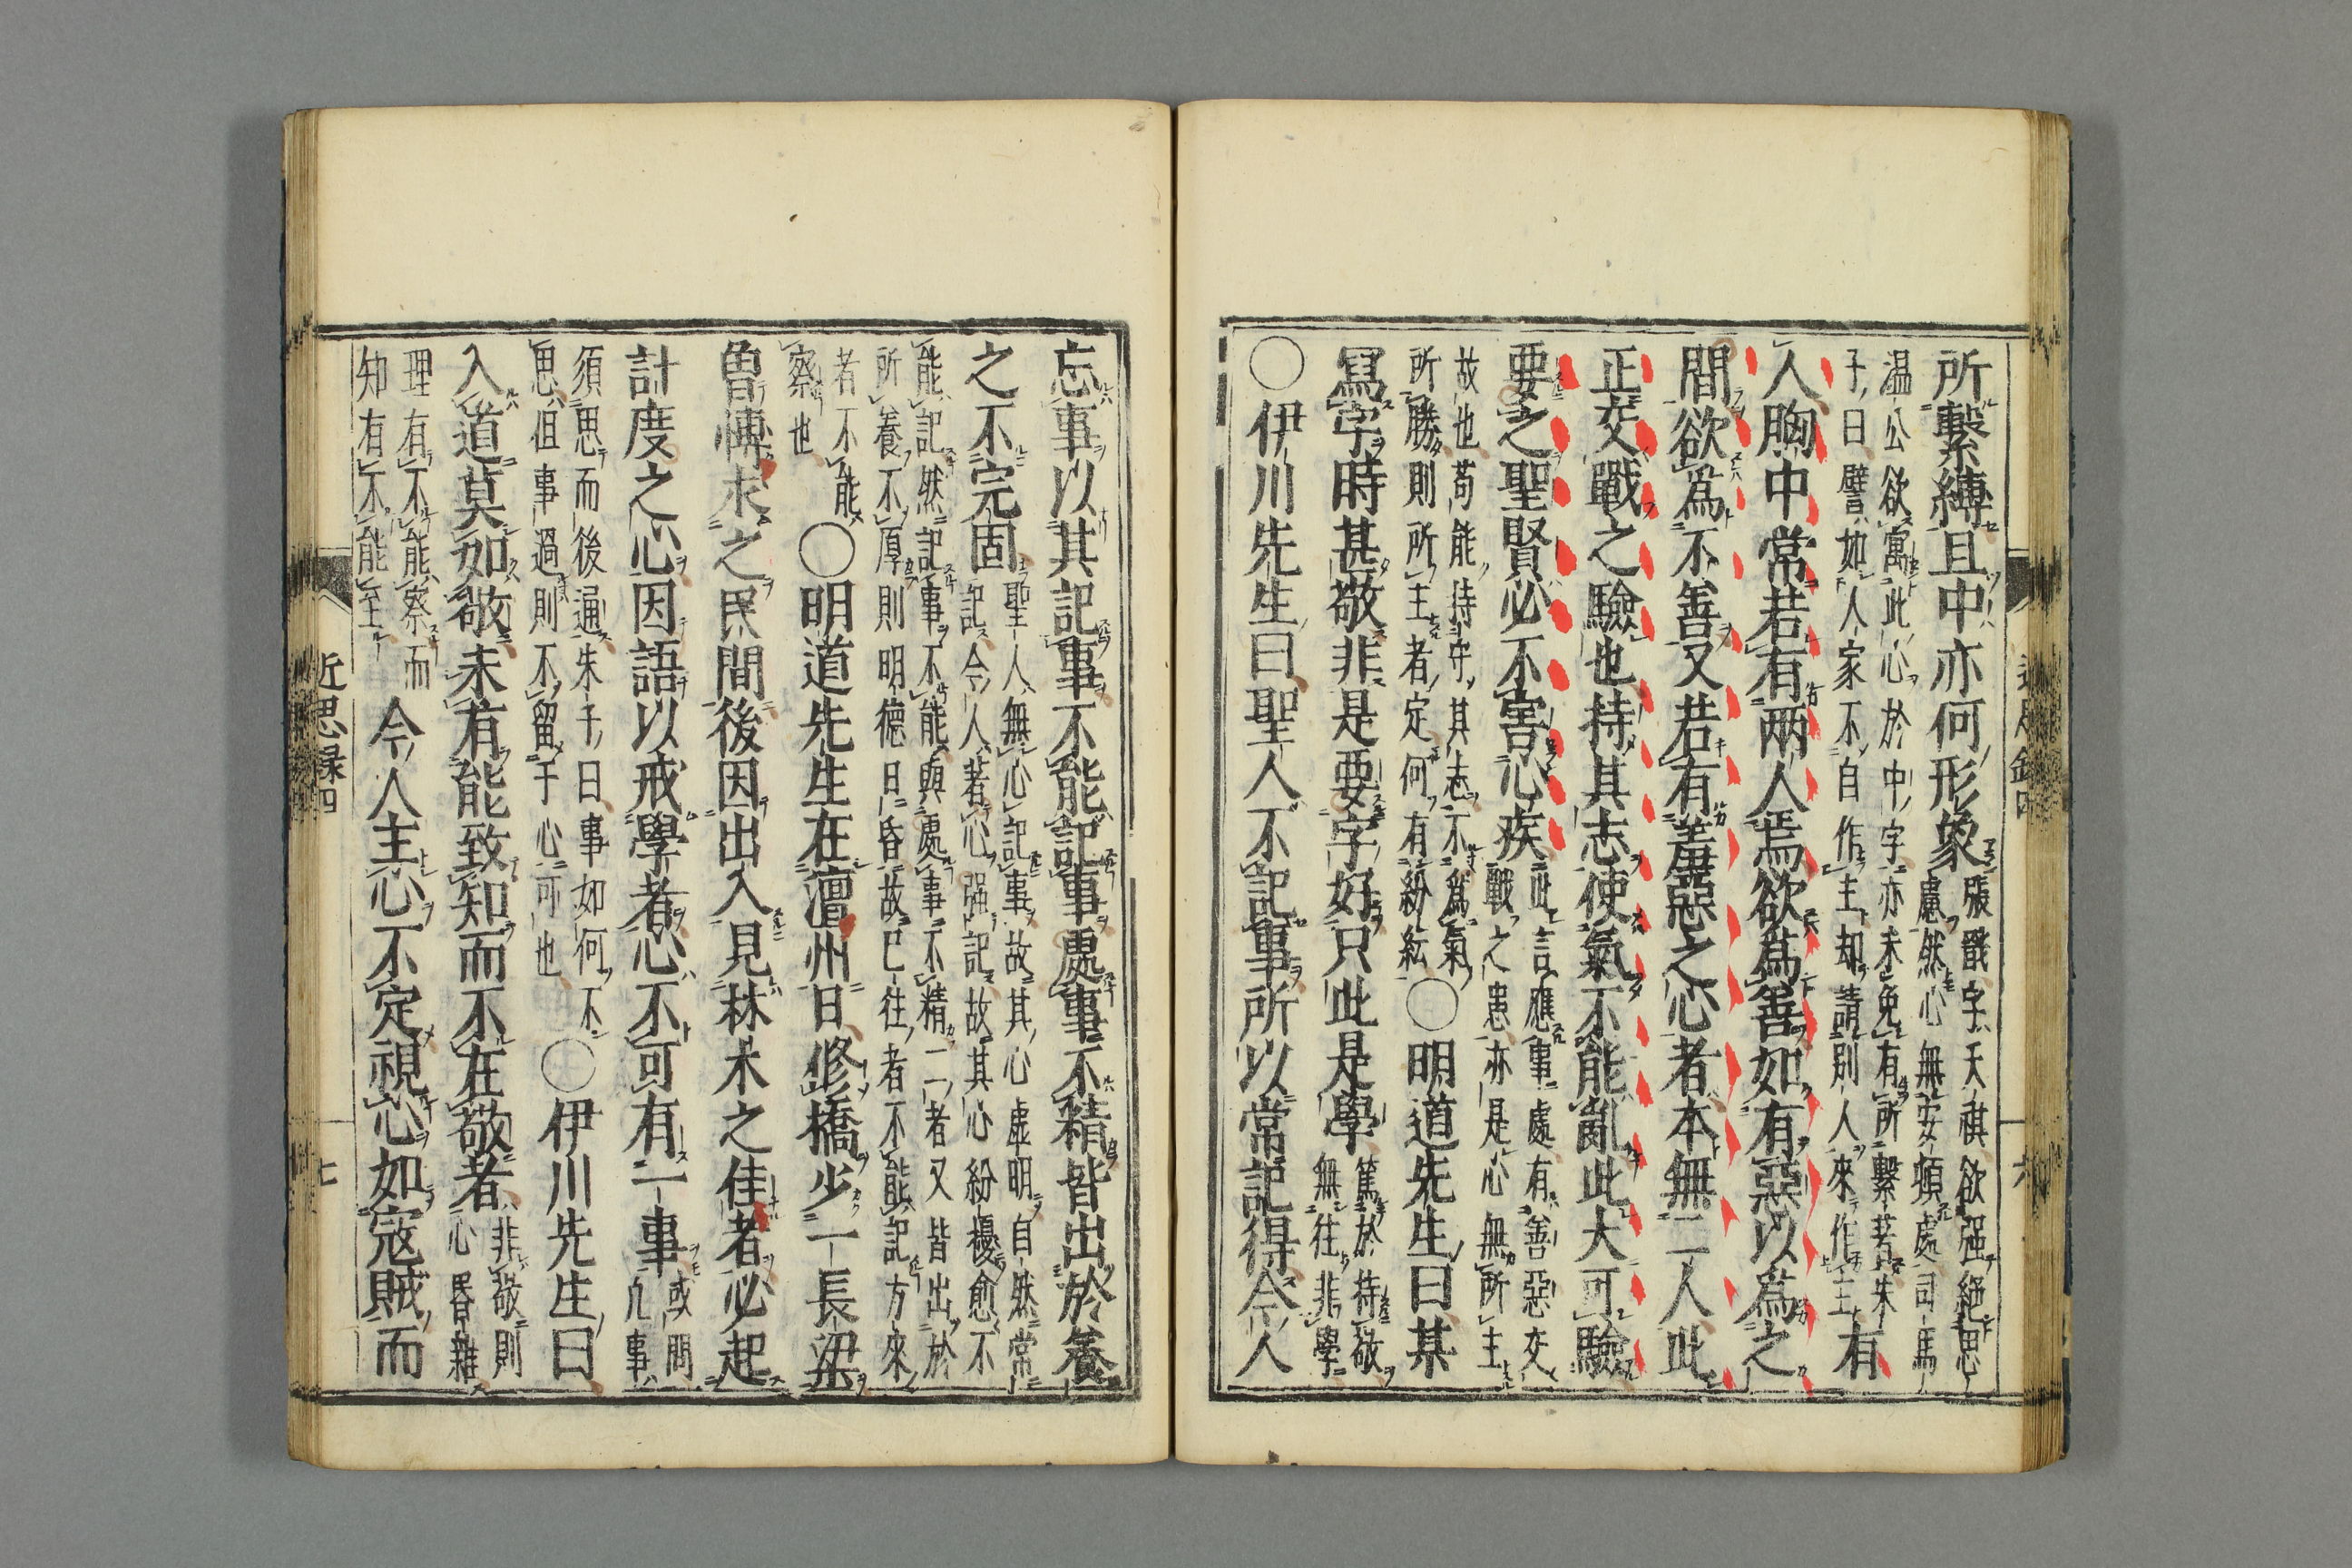 所繫縛且中亦何形象
張戩字天祺欲强絶思
慮然心無安頓處司馬
温公欲寓此心於中字亦未免有所繫著朱
子曰譬如人家不自作主却請別人來作主
有
人胸中常若有兩人焉欲爲善如有惡以爲之
間欲爲不善又若有羞惡之心者本無二人此
正交戰之驗也持其志使氣不能亂此大可驗
要之聖賢必不害心疾
此言應事處有善惡交
戰之患亦是心無所主
故也苟能持守其志不爲氣
所勝則所主者定何有紛紜
○明道先生曰某
冩字時甚敬非是要字好只此是學
篤於持敬
無往非學
○伊川先生曰聖人不記事所以常記得今人
忘事以其記事不能記事處事不精皆出於養
之不完固
聖人無心記事故其心虚明自然常
記今人著心强記故其心紛擾愈不
能記然記事不能與處事不精二者又皆出於
所養不厚則明德日昏故已往者不能記方來
者不能
察也
○明道先生在澶州日修橋少一長梁
曾愽求之民間後因出入見林木之佳者必起
計度之心因語以戒學者心不可有一事
或問
凡事
須思而後通朱子曰事如何不
思但事過則不留于心可也
○伊川先生曰
入道莫如敬未有能致知而不在敬者
非敬則
心昏雜
理有不能察而
知有不能至
今人主心不定視心如寇賊而
近思録四
七
六